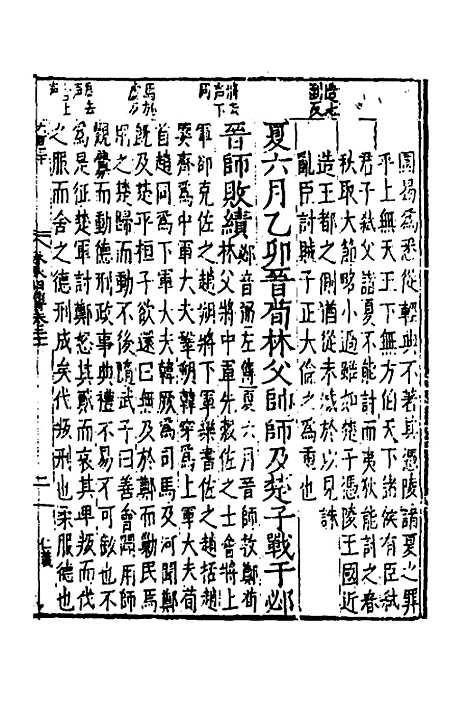 圍曷爲悉從輕典不著其憑陵諸夏之罪
乎上無天王下無方伯天下諸侯有臣弑
君子弑父諸夏不能討而夷狄能討之春
秋取大節略小過雖如楚子憑陵王國近
造王都之側猶從末減於以見誅
亂臣討賊子正大倫之爲重也
夏六月乙卯晉荀林父帥師及楚子戰于邲
晉師敗績
林父將中軍先縠佐之士會將上
軍郤克佐之趙朔將下軍欒書佐之趙括趙
嬰齊爲中軍大夫鞏朔韓穿爲上軍大夫荀
首趙同爲下軍大夫韓厥爲司馬及河聞鄭
旣及楚平桓子欲還曰無及於鄭而勦民焉
用之楚歸而動不後隨武子曰善會聞用師
觀釁而動德刑政事典禮不易不可敵也不
爲是征楚軍討鄭怒其貳而哀其卑叛而伐
之服而舍之德刑成矣伐叛刑也柔服德也
邲音弼左傳夏六月晉師救鄭荀